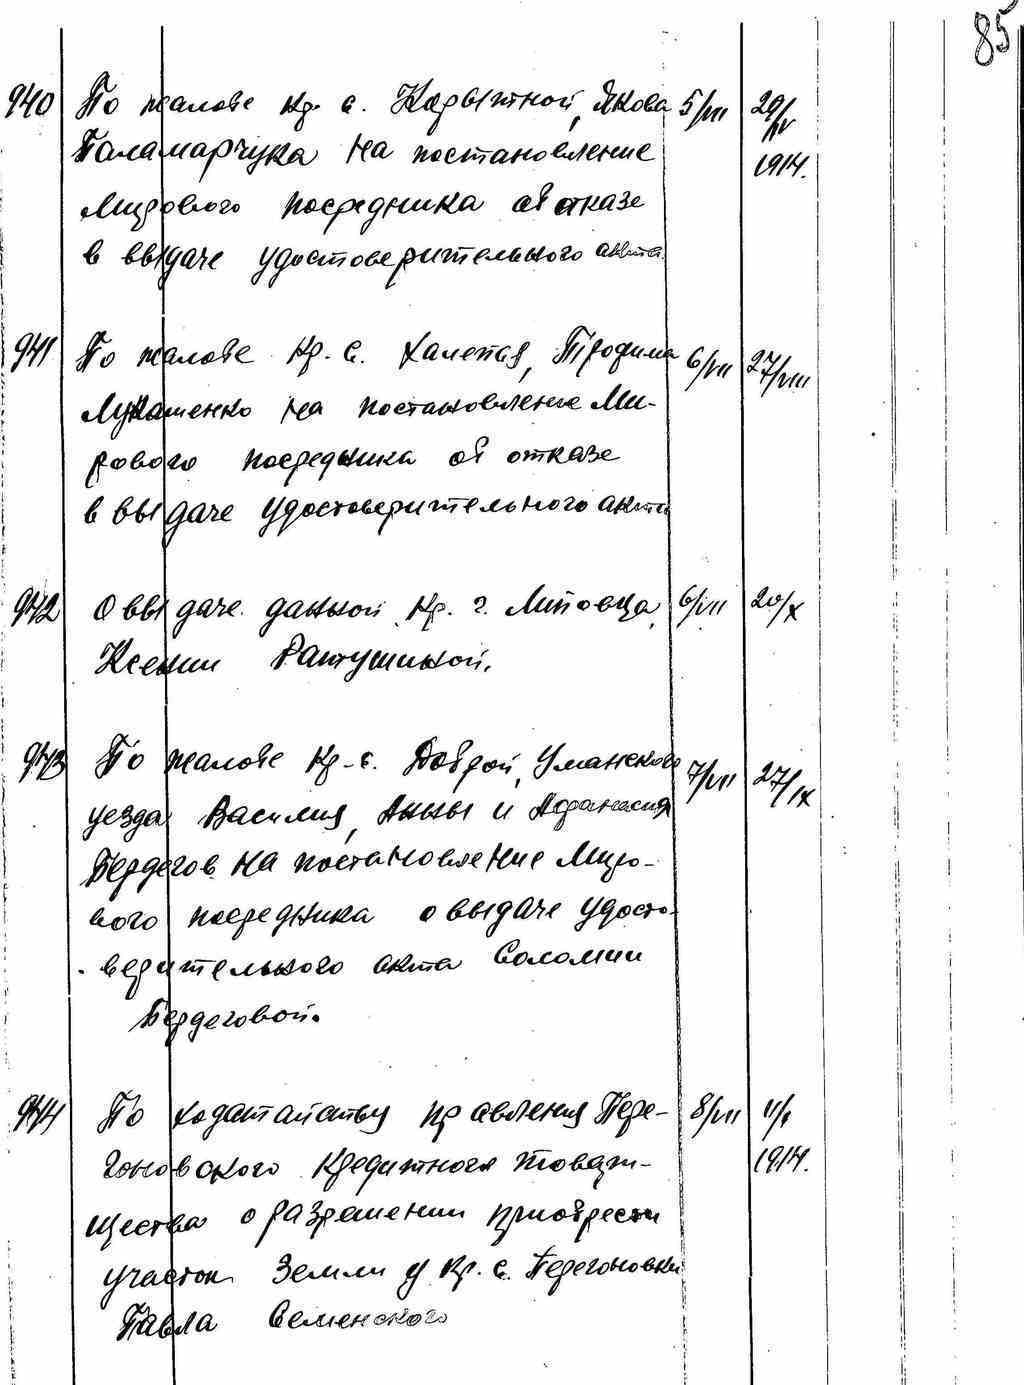 85
940 По жалобе кр. с. Карытной, Якова 5/VII 29/IV
Паламарчука на постановление 1914.
Мирового посредника об отказе
в выдаче удостоверительного акта.
941 По жалобе Кр. с. Халепья, Трофима 6/VII 27/VIII
Лукашенко на постановление Ми-
рового посредника об отказе
в выдаче удостоверительного акта
942 О выдаче данной Кр. г. Липовца, 6/VII 20/X
Ксении Ратушиной.
943 По жалобе Кр-с. Доброй, Уманского 7/VII 27/IX
уезда Василия, Анны и Афанасия
Бердегов на постановление Миро-
вого посредника о выдаче удосто-
верительного акта Соломии
Бердеговой.
944 По ходатайству правления Пере- 8/VII 11/I
гоновского Кредитного товари- 1914.
щества о разрешении приобрести
участок земли у Кр. с. Перегоновки
Павла Семенского